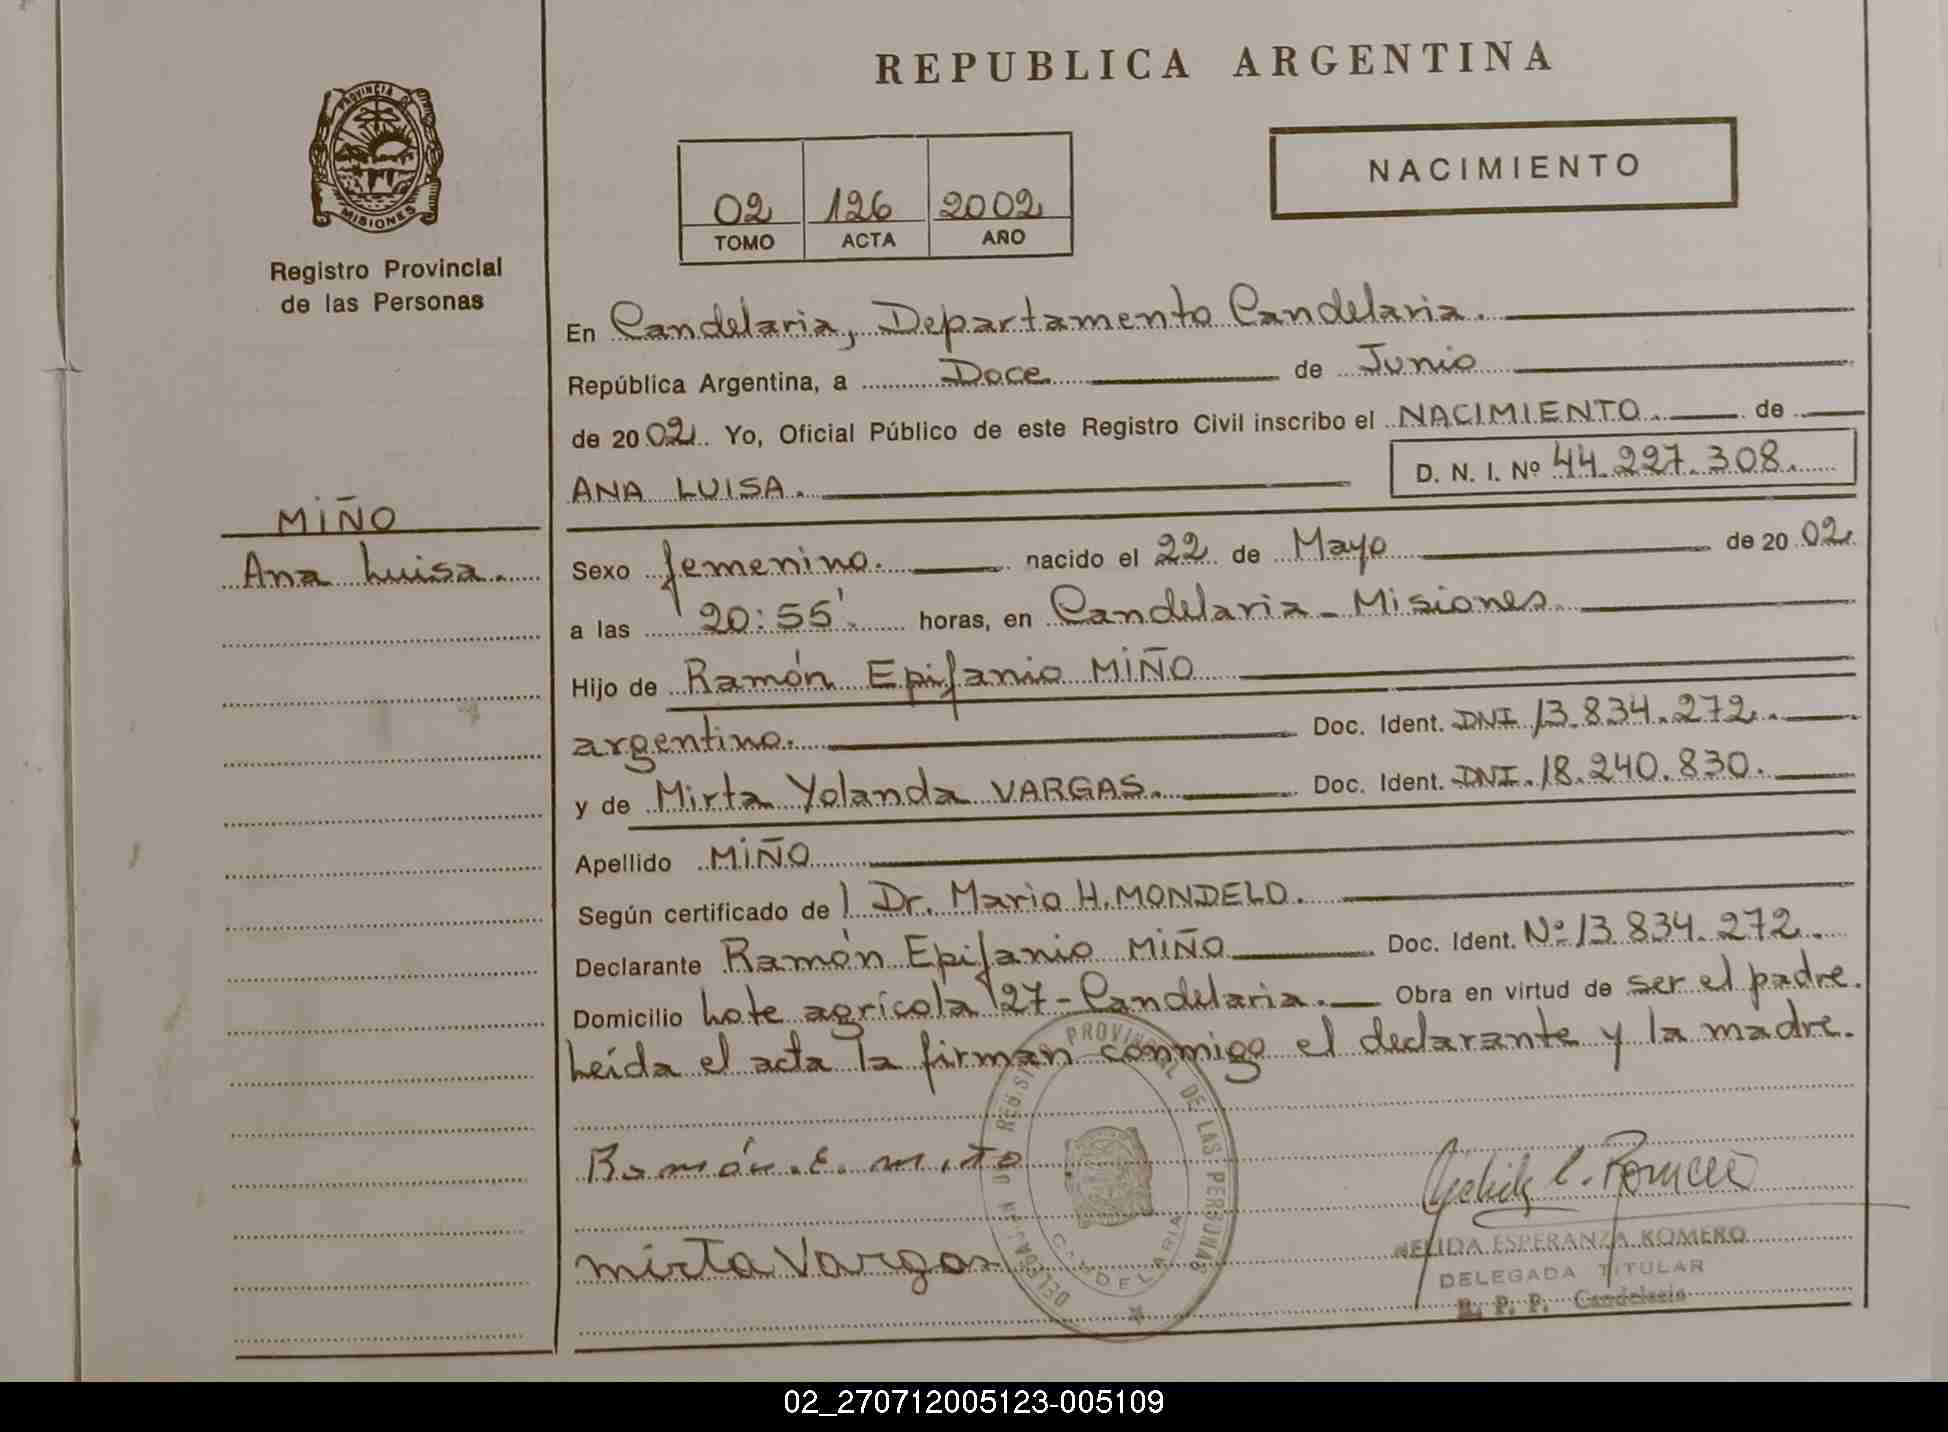 REPUBLICA ARGENTINA
PROVINCIA DE
MISIONES
Registro Provincial
de las Personas
02 126 2002
TOMO ACTA AÑO
NACIMIENTO
En Candelaria, Departamento Candelaria.
República Argentina, a Doce de Junio
de 2002. Yo, Oficial Público de este Registro Civil inscribo el NACIMIENTO de
ANA LUISA. D. N. I. Nº 44.227.308.
MIÑO
Ana Luisa.
Sexo femenino. nacido el 22 de Mayo de 2002.
a las 20:55'. horas, en Candelaria - Misiones.
Hijo de Ramón Epifanio MIÑO
argentino. Doc. Ident. DNI 13.834.272.
y de Mirta Yolanda VARGAS. Doc. Ident. DNI. 18.240.830.
Apellido MIÑO
Según certificado de Dr. Mario H. MONDELO.
Declarante Ramón Epifanio MIÑO Doc. Ident. Nº 13.834.272.
Domicilio Lote agrícola 27 - Candelaria. Obra en virtud de ser el padre.
Leída el acta la firman conmigo el declarante y la madre.
Ramón. E. miño
mirta Vargas
PROVINCIAL DE LAS PERSONAS
CANDELARIA
NELIDA ESPERANZA ROMERO
DELEGADA TITULAR
R. P. P. Candelaria
02_270712005123-005109